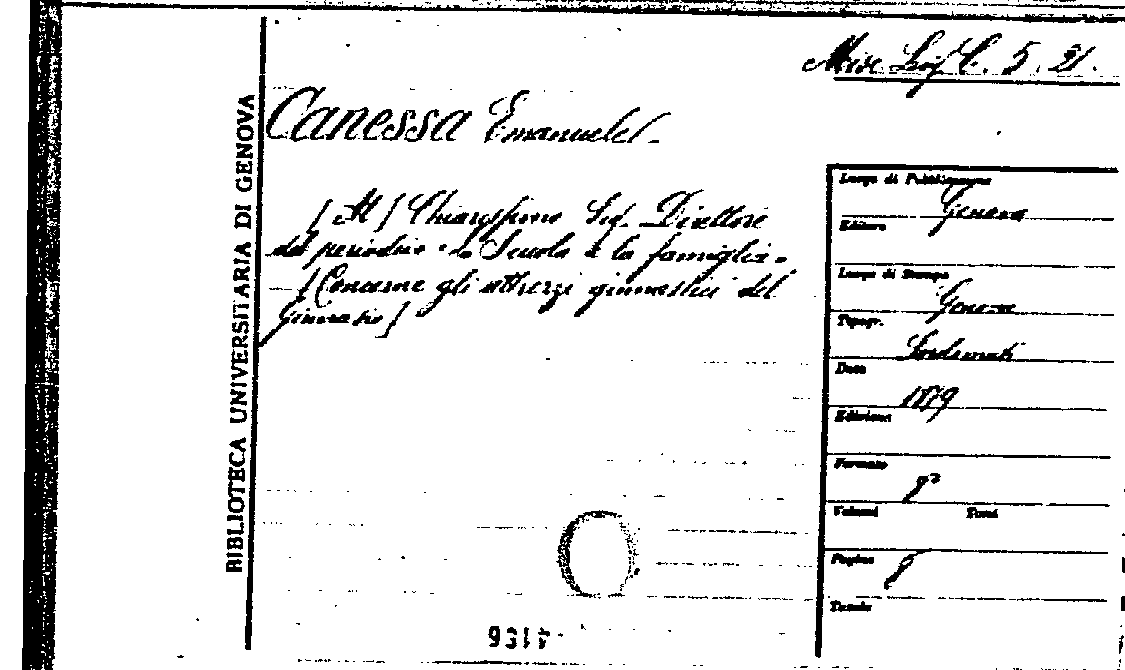 Misc. Lig. C. 5. 21.
BIBLIOTECA UNIVERSITARIA DI GENOVA
Canessa Emanuele
[Al] Chiarissimo Sig. Direttore
del periodico "la Scuola e la famiglia"
[Concerne gli attrezzi ginnastici del
Ginnasio]
Luogo di Pubblicazione
Genova
Editore
Luogo di Stampa
Genova
Tipogr.
Sordomuti
Data
1879
Edizione
Formato
8°
Volumi Tomi
Pagine
8
Tavole